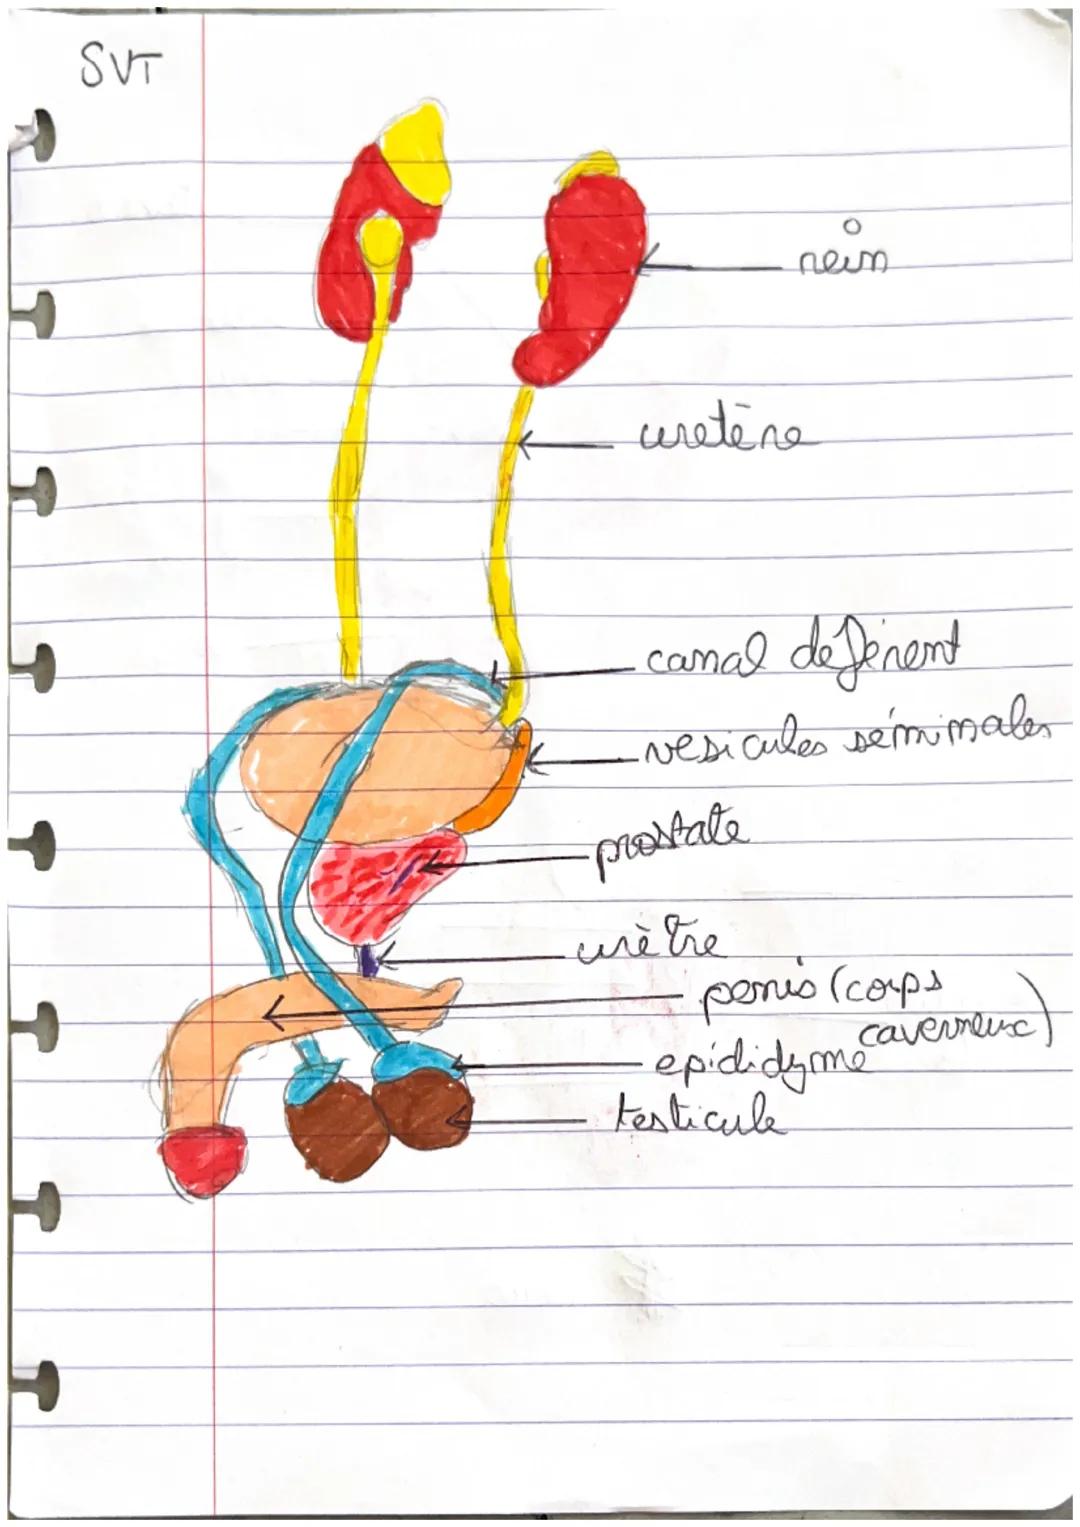 SVT
rein
uretère
canal déférent
vesicules séminales
prostate
urètre
penis (corps
caverneux)
epididyme
testicule